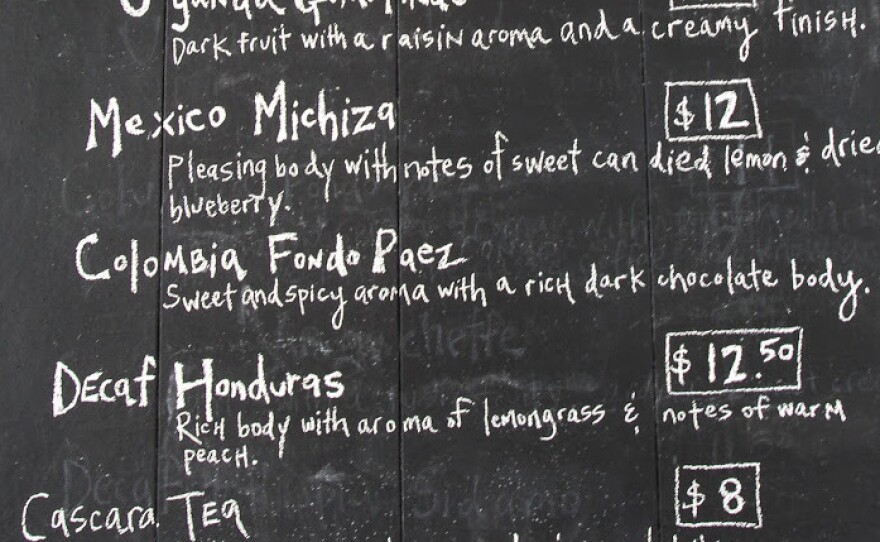 Uganda
Dark fruit with a raisin aroma and a creamy finish.
Mexico Michiza $12
Pleasing body with notes of sweet can died lemon & drie
blueberry.
Colombia Fondo Paez
Sweet and spicy aroma with a rich dark chocolate body.
Decaf Honduras $12.50
Rich body with aroma of lemongrass & notes of warm
peach.
Cascara Tea $8